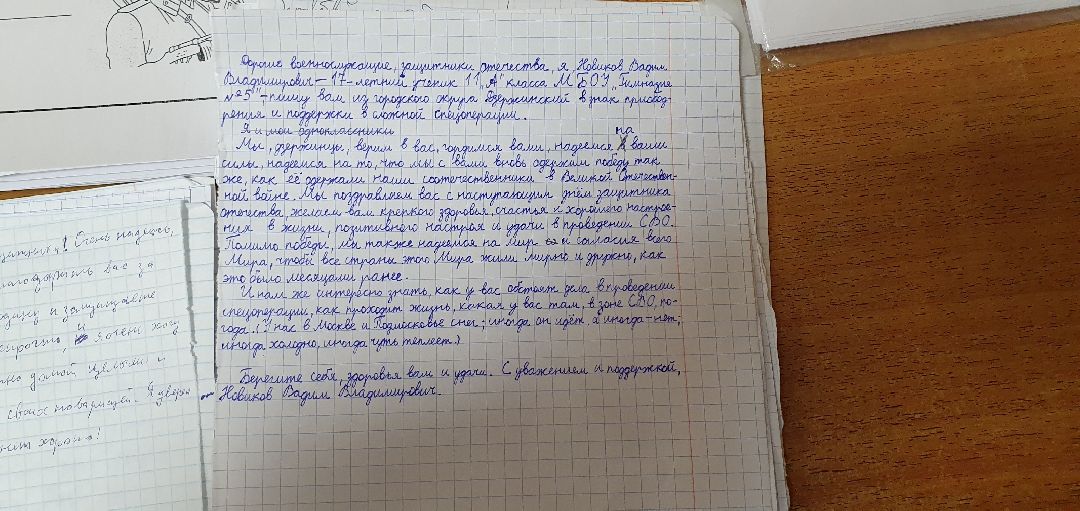 Дорогие военнослужащие, защитники отечества, я Новиков Вадим
Владимирович – 17-летний ученик 11 „А" класса МБОУ „Гимназия
№5" – пишу вам из городского округа Дзержинский в знак приобод-
рения и поддержки в сложной спецоперации.
Я и мои одноклассники
на
Мы, дзержинцы, верим в вас, гордимся вами, надеемся ваши
силы, надеемся на то, что мы с вами вновь одержим победу так
же, как её одержали наши соотечественники в Великой Отечествен-
ной войне. Мы поздравляем вас с наступающим днём защитника
отечества, желаем вам крепкого здоровья, счастья и хорошего настрое-
ния в жизни, позитивного настроя и удачи в проведении СВО.
Помимо победы, мы также надеемся на мир и согласия всего
Мира, чтобы все страны этого Мира жили мирно и дружно, как
это было месяцами ранее.
И нам же интересно знать, как у вас обстоят дела в проведении
спецоперации, как проходит жизнь, какая у вас там, в зоне СВО, по-
года. (У нас в Москве и Подмосковье снег; иногда он идёт, а иногда – нет,
иногда холодно, иногда чуть теплеет.)
Берегите себя, здоровья вам и удачи. С уважением и поддержкой,
Новиков Вадим Владимирович.
Очень надеюсь,
вас за
и защищаете
и я очень хочу
домой целыми и
своих товарищей. Я уверен
хорошо!